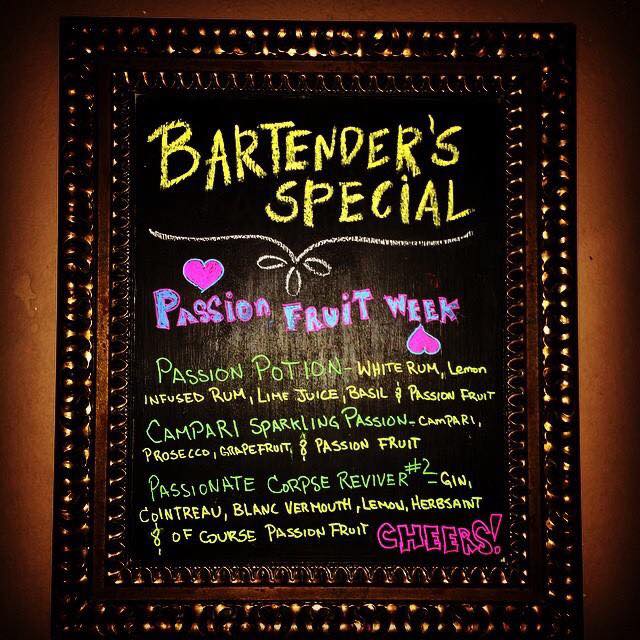 BARTENDER'S
SPECIAL
PASSION FRUIT WEEK
PASSION POTION - WHITE RUM, Lemon
INFUSED RUM, LIME JUICE, BASIL & PASSION FRUIT
CAMPARI SPARKLING PASSION - CAMPARI,
PROSECCO, GRAPEFRUIT, & PASSION FRUIT
PASSIONATE CORPSE REVIVER #2 - GIN,
COINTREAU, BLANC VERMOUTH, LEMON, HERBSAINT
& OF COURSE PASSION FRUIT CHEERS!